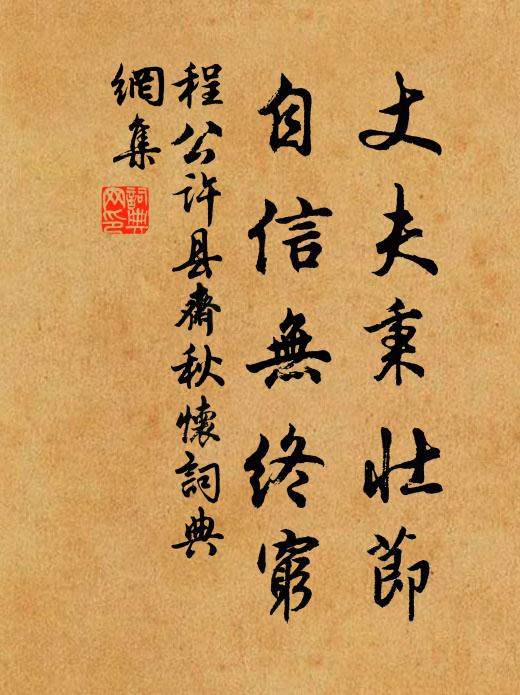 丈夫秉壮節
自信無終窮
程公許县齋秋懷詞典
網集
詞典
网印